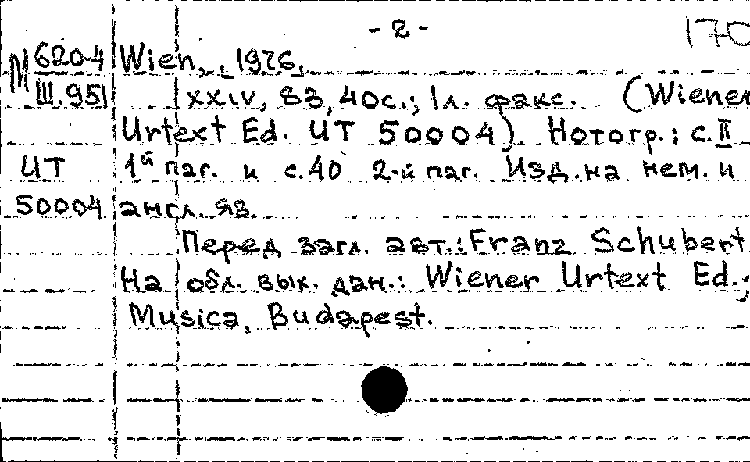 - 2 -
170
М 620-4
III.95
Wien, 1976.
XXIV, 83, 40с.; 1л. факс. (Wiener
Urtext Ed. UT 50004). Нотогр.: с. II
UT
50004
1й паг. и с.40 2-й паг. Изд. на нем. и
англ. яз.
Перед загл. авт.: Franz Schubert.
На обл. вых. дан.: Wiener Urtext Ed.;
Musica, Budapest.